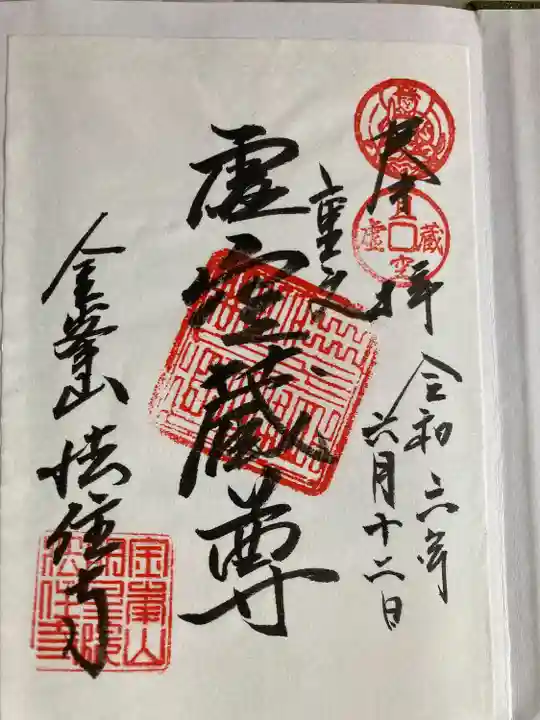 奉拝
虚空蔵
令和六年
六月十二日
重文
虚空蔵尊
金峯山 法住寺
金峯山
明星院
法住寺